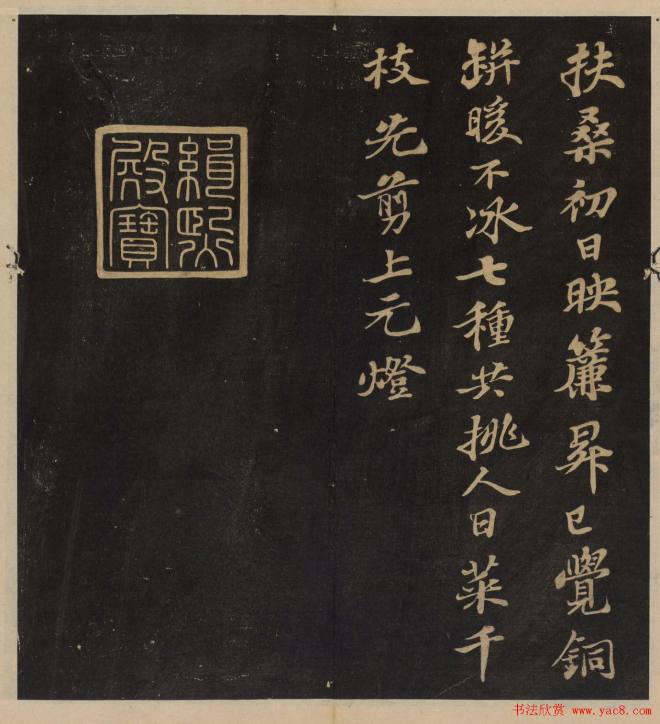 扶桑初日映簾昇已覺銅
缾暖不冰七種共挑人日菜千
枝先剪上元燈
緝熙
殿寶
书法欣赏 www.yac8.com